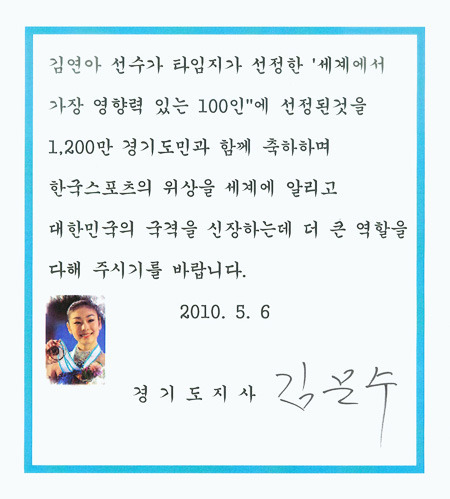 김연아 선수가 타임지가 선정한 '세계에서
가장 영향력 있는 100인"에 선정된것을
1,200만 경기도민과 함께 축하하며
한국스포츠의 위상을 세계에 알리고
대한민국의 국격을 신장하는데 더 큰 역할을
다해 주시기를 바랍니다.
2010. 5. 6
경기도지사 김문수